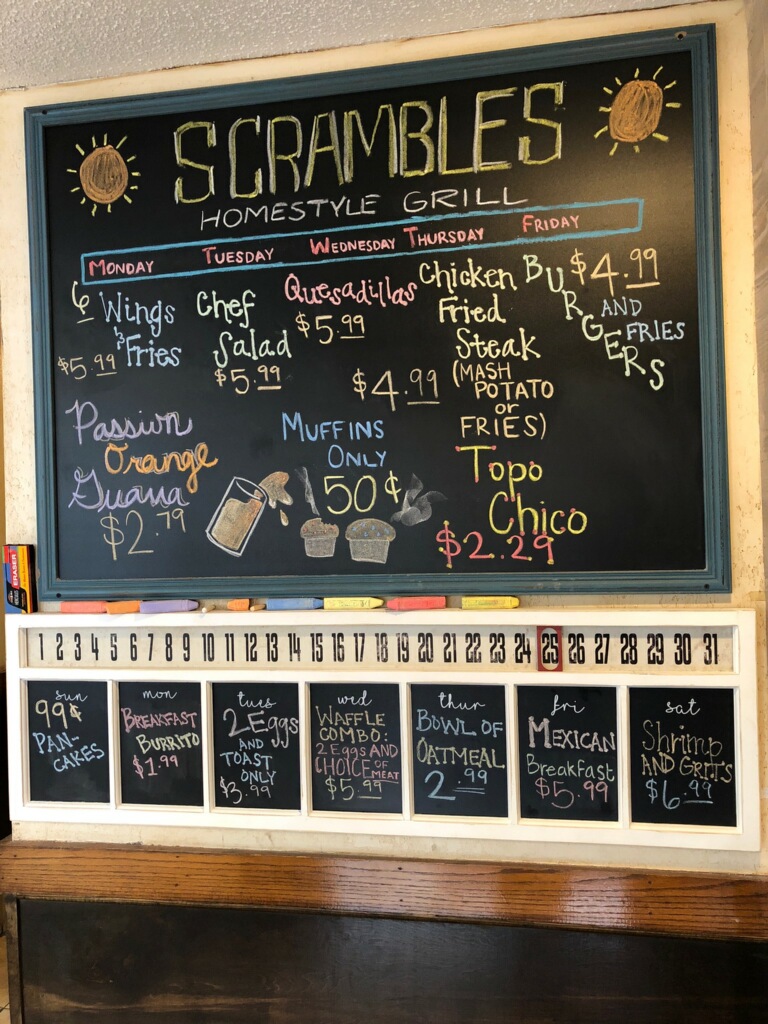 SCRAMBLES
HOMESTYLE GRILL
MONDAY TUESDAY WEDNESDAY THURSDAY FRIDAY
6 Wings
& Fries
$5.99
Chef
Salad
$5.99
Quesadillas
$5.99
Chicken
Fried
Steak
(MASH
POTATO
or
FRIES)
$4.99
BURGERS
$4.99
AND
FRIES
Passion
Orange
Guava
$2.79
MUFFINS
ONLY
50¢
Topo
Chico
$2.29
ERASER
1 2 3 4 5 6 7 8 9 10 11 12 13 14 15 16 17 18 19 20 21 22 23 24 25 26 27 28 29 30 31
sun
99¢
PAN-
CAKES
mon
BREAKFAST
BURRITO
$1.99
tues
2 Eggs
AND
TOAST
ONLY
$3.99
wed
WAFFLE
COMBO:
2 Eggs AND
CHOICE OF MEAT
$5.99
thur
BOWL OF
OATMEAL
2.99
fri
MEXICAN
Breakfast
$5.99
sat
Shrimp
AND GRITS
$6.99